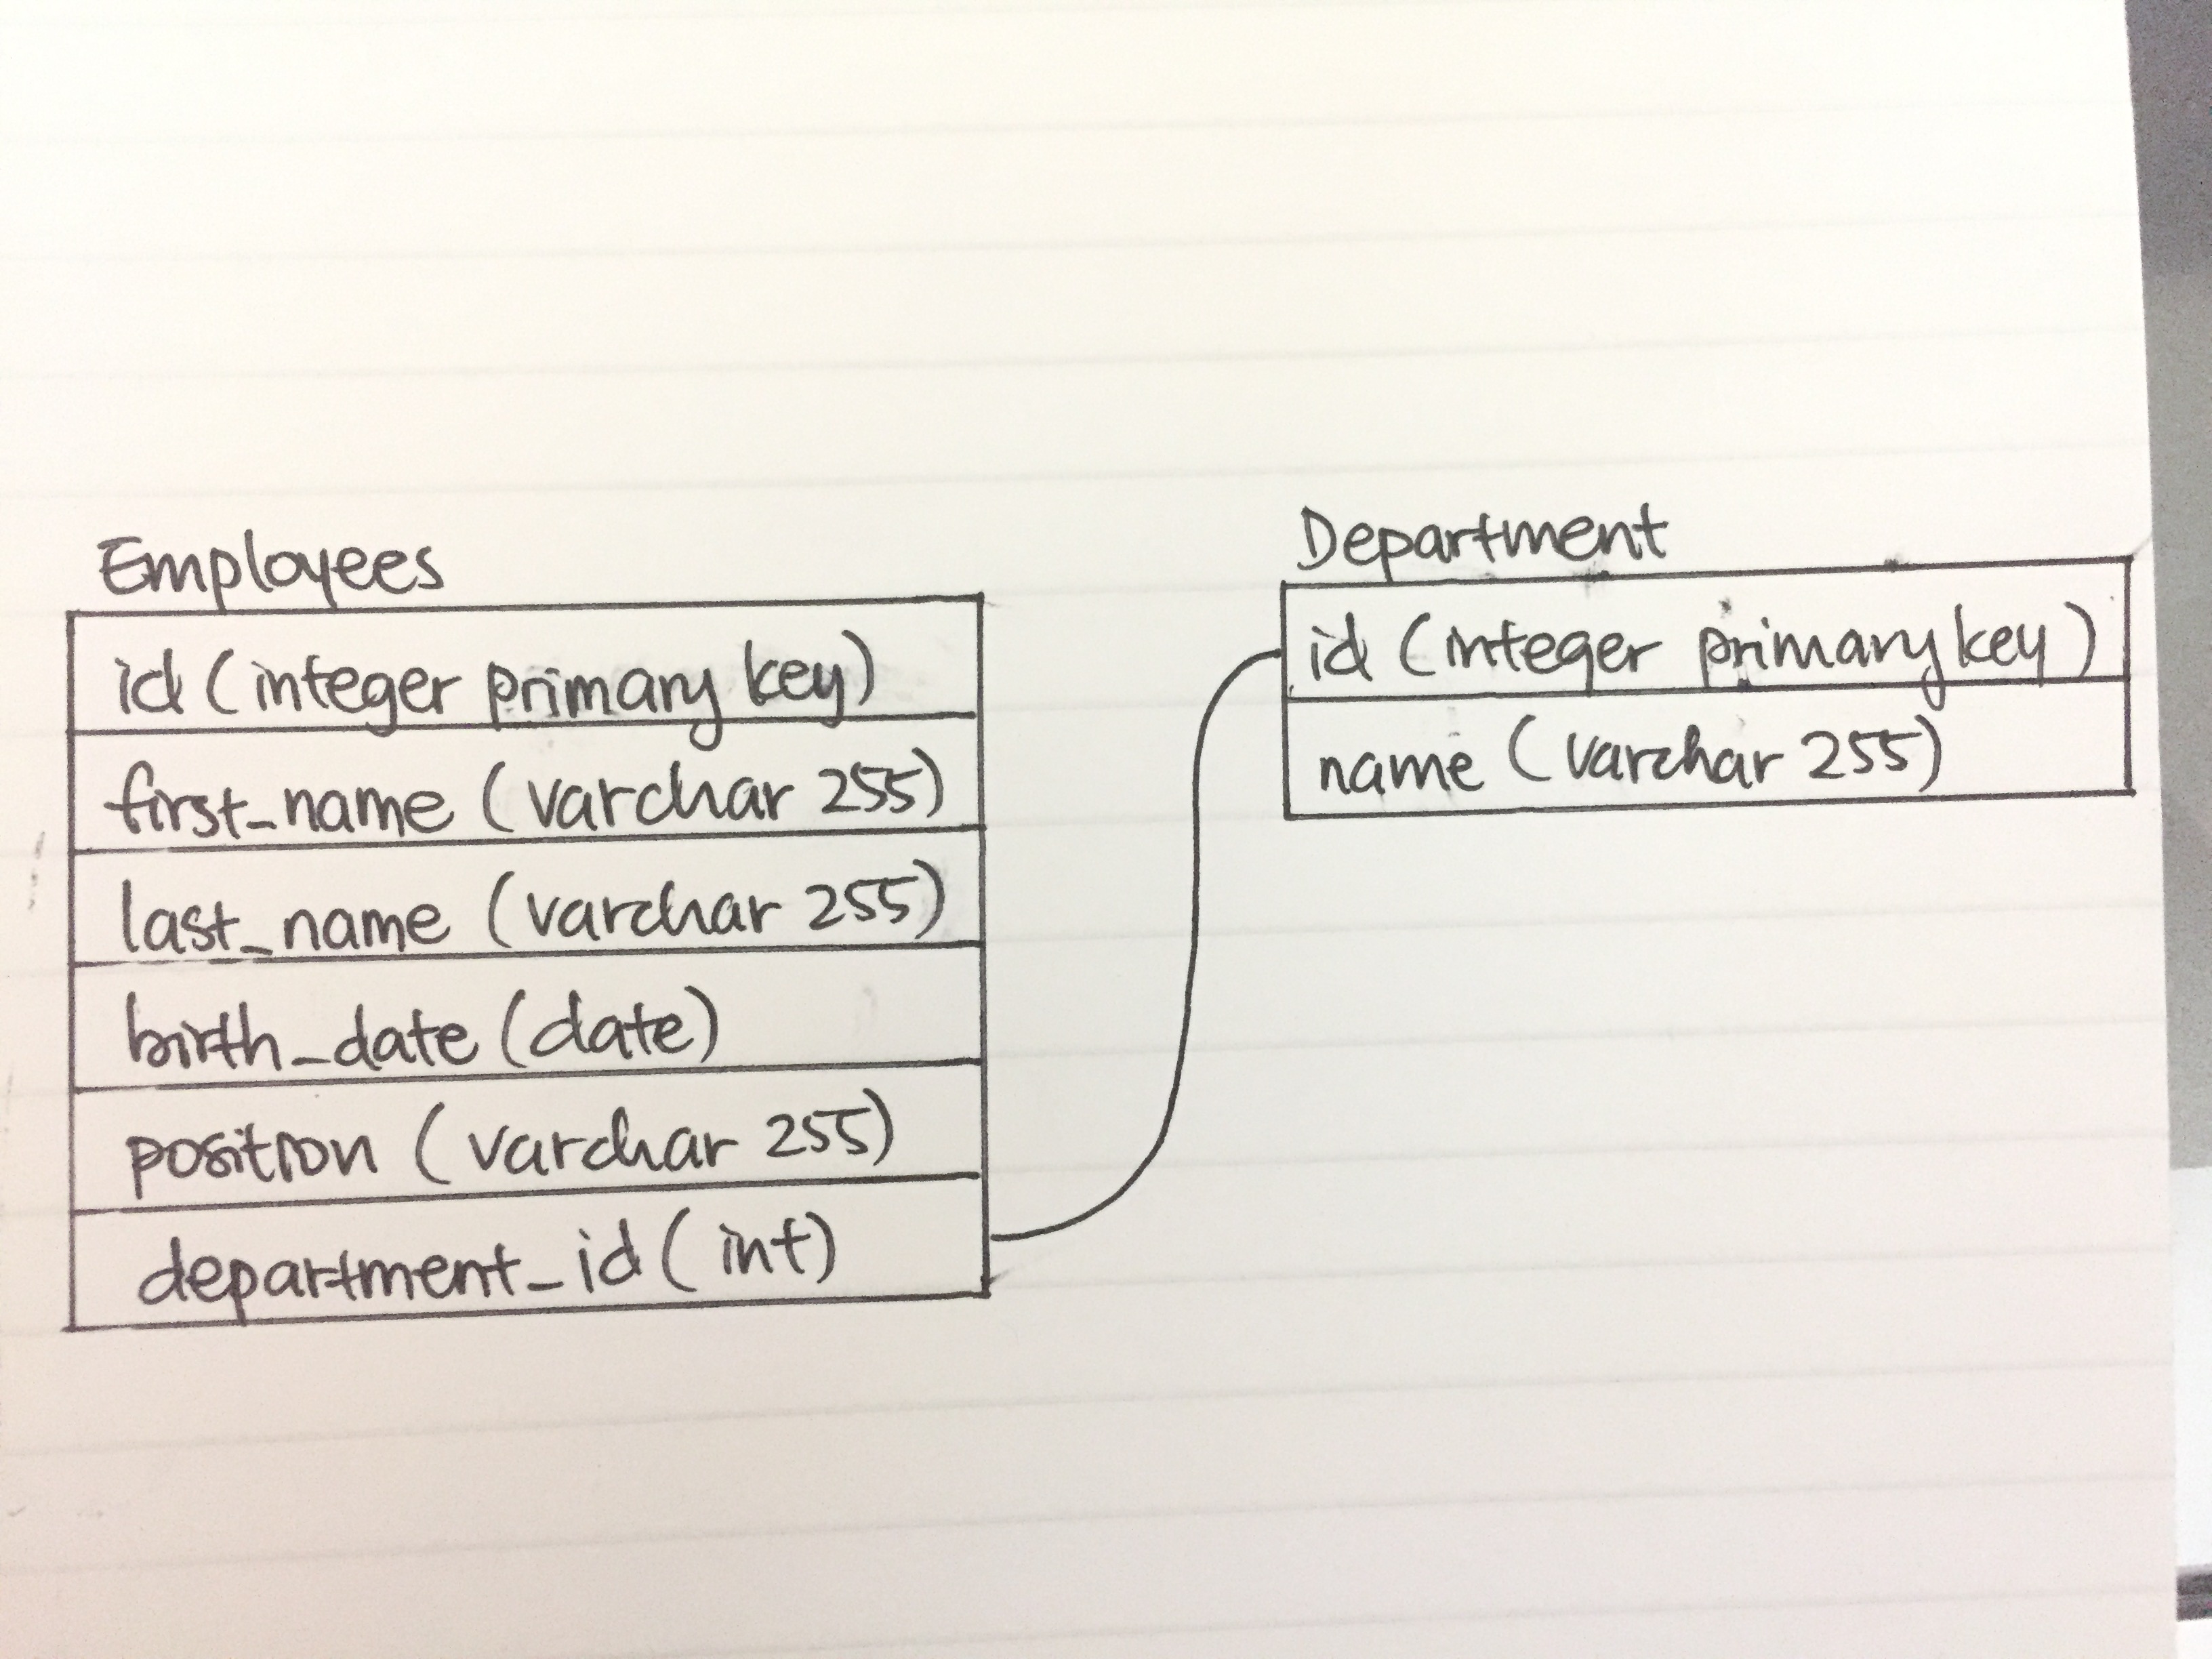 Employees
id (integer primary key)
first_name (varchar 255)
last_name (varchar 255)
birth_date (date)
position (varchar 255)
department_id (int)
Department
id (integer primary key)
name (varchar 255)